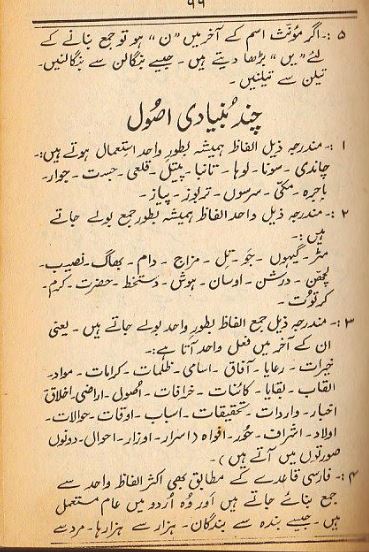 ۹۹
۵ :۔ اگر مؤنّث اسم کے آخر میں ”ن“ ہو تو جمع بنانے کے
لئے ”یں“ بڑھا دیتے ہیں۔ جیسے بنگالن سے بنگالنیں۔
تیلن سے تیلنیں۔
چند بُنیادی اصُول
۱ :۔ مندرجہ ذیل الفاظ ہمیشہ بطور واحد استعمال ہوتے ہیں:۔
چاندی۔ سونا۔ لوہا۔ تانبا۔ پیتل۔ قلعی۔ جست۔ جوار۔
باجرہ۔ مکئی۔ سرسوں۔ تربوز۔ پیاز۔
۲ :۔ مندرجہ ذیل واحد الفاظ ہمیشہ بطور جمع بولے جاتے
ہیں:۔
مٹر۔ گیہوں۔ جَو۔ تِل۔ مزاج۔ دام۔ بھاگ۔ نصیب۔
لچھّن۔ درشن۔ اوسان۔ ہوش۔ دستخط۔ حضرت۔ کرم۔
کرتوُت۔
۳ :۔ مندرجہ ذیل جمع الفاظ بطور واحد بولے جاتے ہیں۔ یعنی
ان کے آخر میں فعل واحد آتا ہے:۔
خیرات۔ رعایا۔ آفاق۔ اسامی۔ ظلمات۔ کرامات۔ مواد۔
القاب۔ بقایا۔ کائنات۔ خرافات۔ اُصُول۔ اراضی۔ اخلاق
اخبار۔ واردات۔ تحقیقات۔ اسباب۔ اوقات۔ حوالات۔
اولاد۔ اشراف۔ حُور۔ افواہ (اسرار۔ اوزار۔ احوال۔ دونوں
صورتوں میں آتے ہیں)۔
۴ :۔ فارسی قاعدے کے مطابق بھی اکثر الفاظ واحد سے
جمع بنائے جاتے ہیں اَور وُہ اُردو میں عام مستعمل
ہیں۔ جیسے بندہ سے بندگان۔ ہزار سے ہزارہا۔ مرد سے